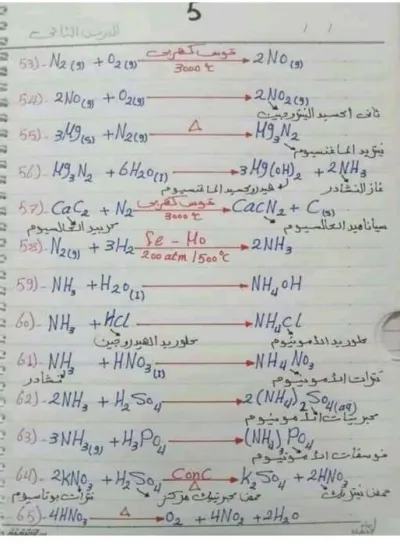 5
الدرس الثاني
/ /
53)- N₂(g) + O₂(g) قوس كهربى 3000°c → 2NO(g)
54)- 2NO(g) + O₂(g) → 2NO₂(g)
ثانى أكسيد النيتروجين
55)- 3Mg(s) + N₂(g) Δ → Mg₃N₂
نيتريد الماغنسيوم
56)- Mg₃N₂ + 6H₂O(l) → 3Mg(OH)₂ + 2NH₃
هيدروكسيد الماغنسيوم غاز النشادر
57)- CaC₂ + N₂ قوس كهربى 3000°c → CaCN₂ + C(s)
كربيد الكالسيوم سياناميد الكالسيوم
58)- N₂(g) + 3H₂ Fe - Mo 200 atm / 500°c → 2NH₃
59)- NH₃ + H₂O(l) → NH₄OH
60)- NH₃ + HCl → NH₄Cl
كلوريد الهيدروجين كلوريد الأمونيوم
61)- NH₃ + HNO₃(l) → NH₄NO₃
نشادر نترات الأمونيوم
62)- 2NH₃ + H₂SO₄ → 2(NH₄)₂SO₄(aq)
كبريتات الأمونيوم
63)- 3NH₃(g) + H₃PO₄ → (NH₄)₃PO₄
فوسفات الأمونيوم
64)- 2KNO₃ + H₂SO₄ ConC Δ → K₂SO₄ + 2HNO₃
نترات بوتاسيوم حمض كبريتيك مركز حمض نيتريك
65)- 4HNO₃ Δ → O₂ + 4NO₂ + 2H₂O